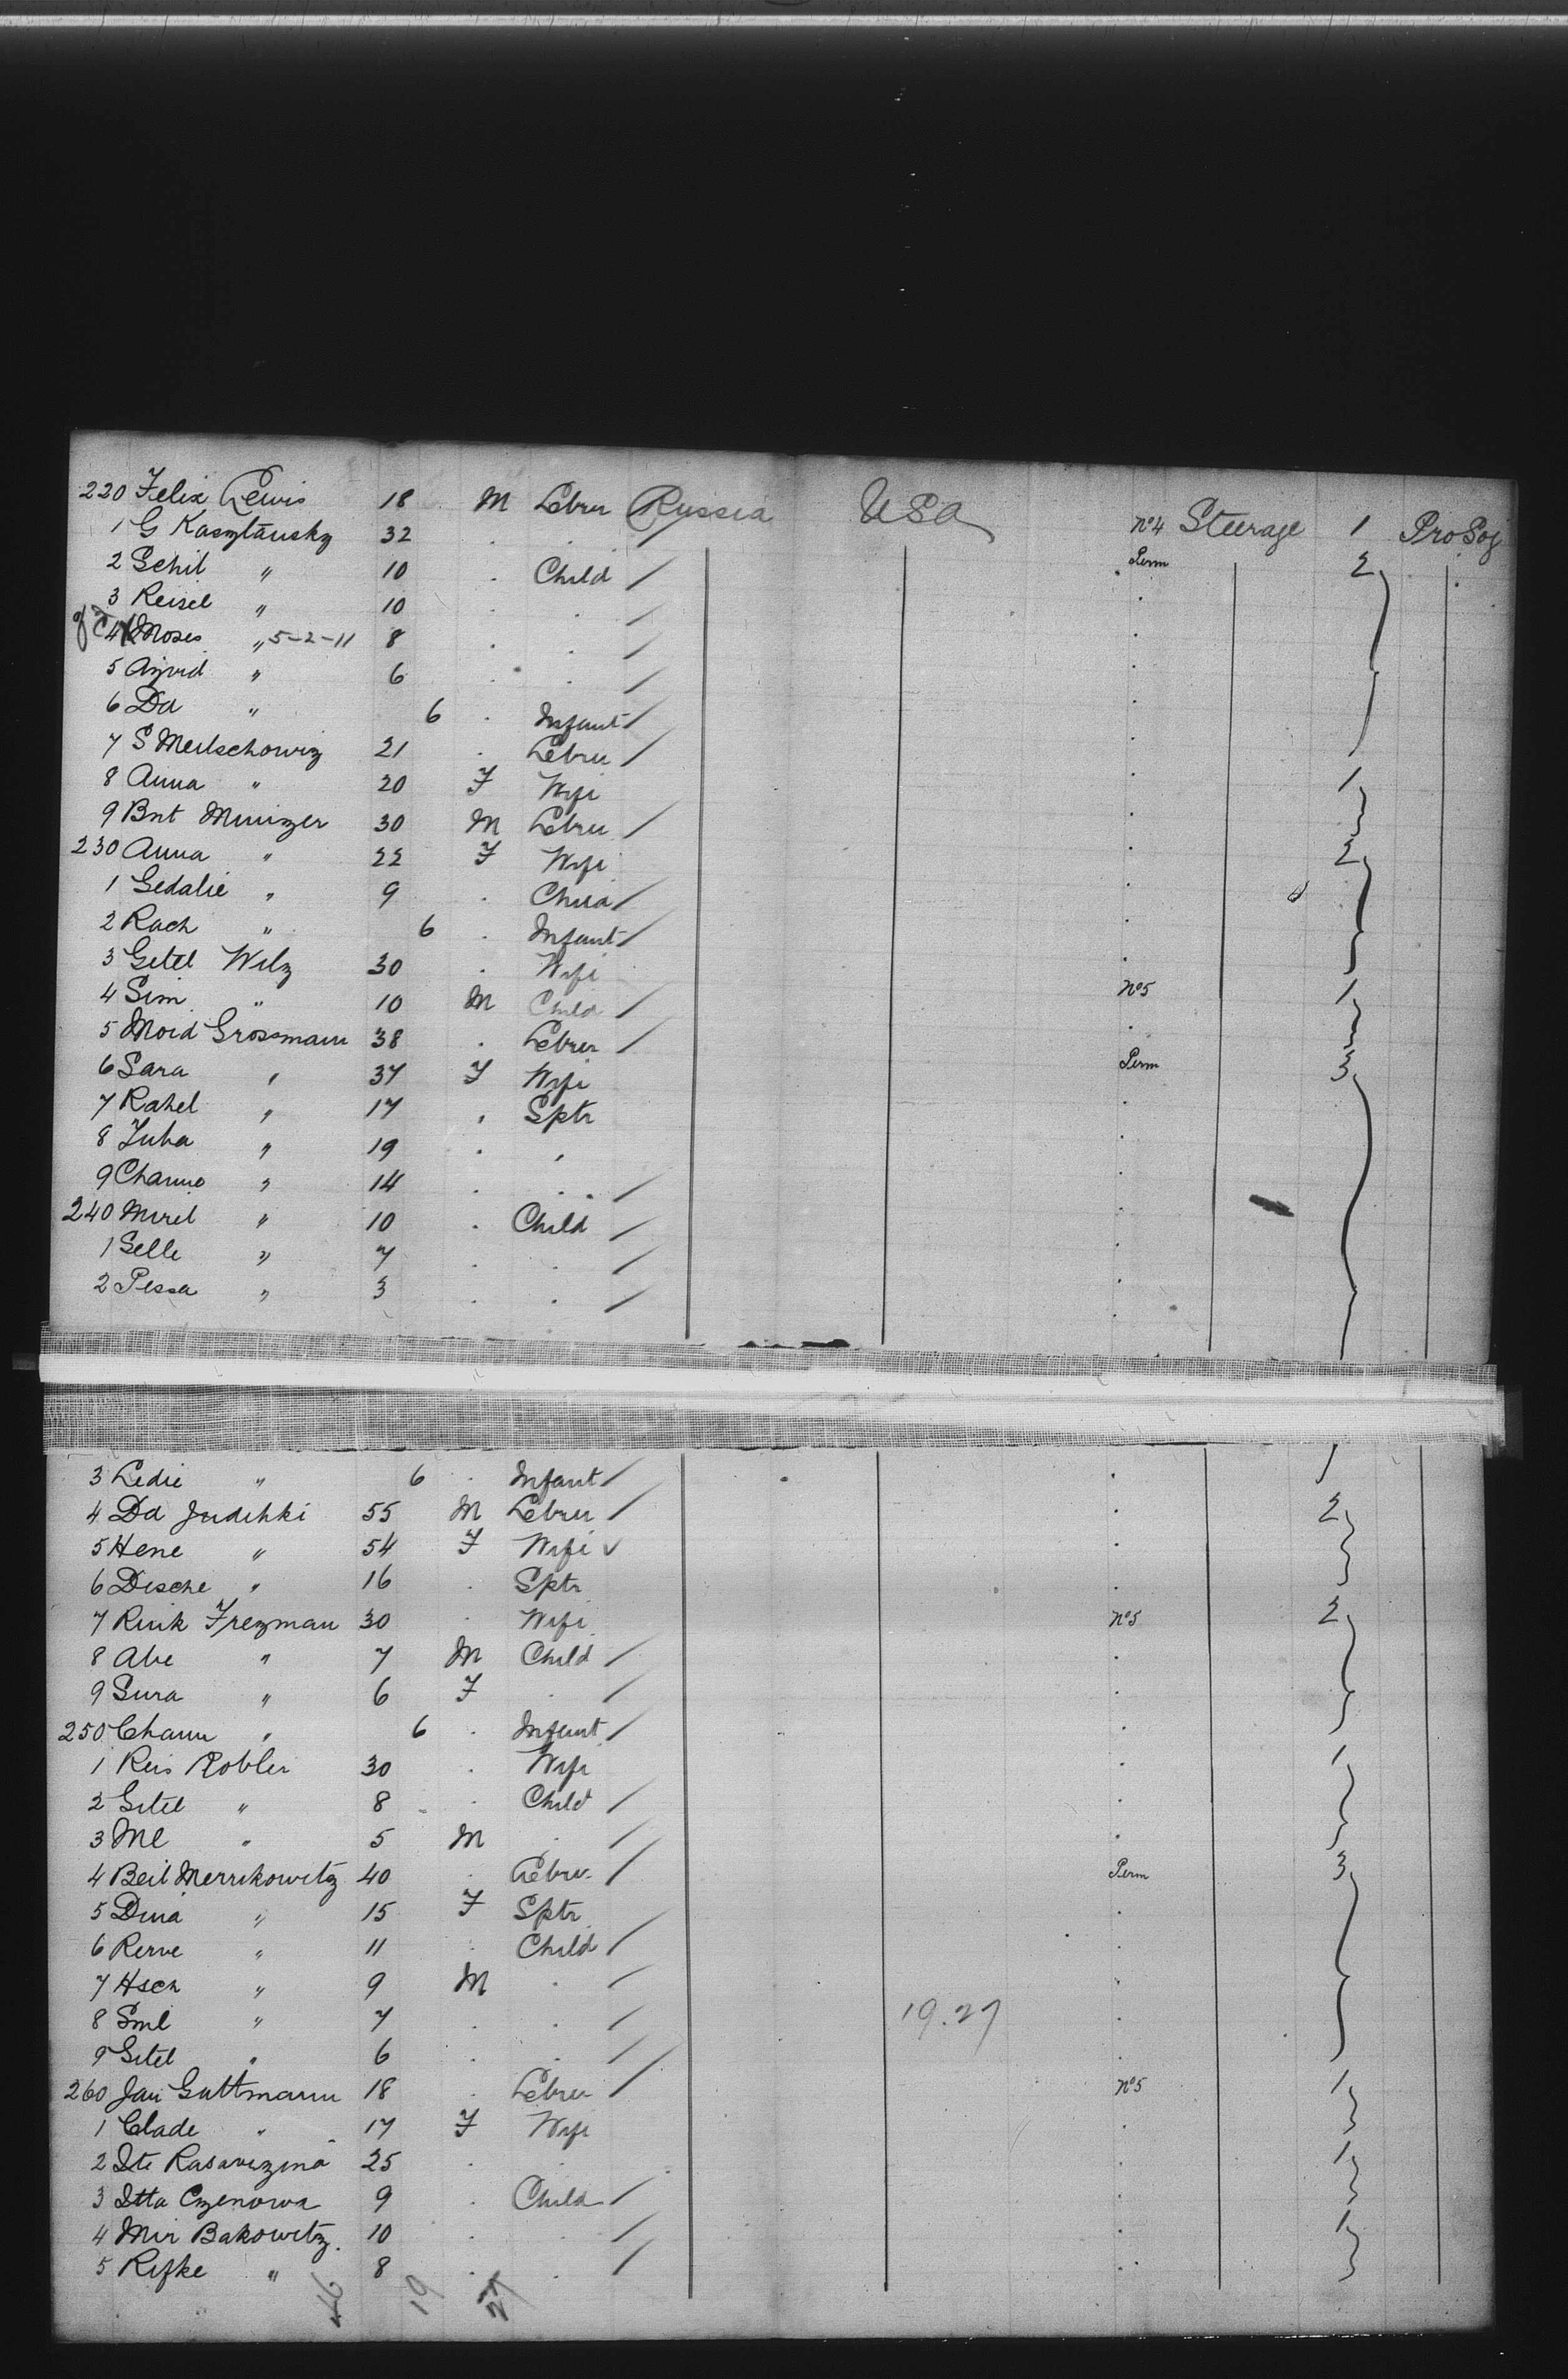 220 Felix Lewis 18 M Lebrer Russia USA No4 Steerage 1 Pro Soj
1 G Kasztansky 32 . . Perm 2
2 Schil " 10 . Child /
3 Reisel " 10 . . /
4 Moses " 5-2-11 8 . . /
5 " 6 . . /
6 Dd " 6 . Infant /
7 S Meilschowiz 21 . Lebrer / 1
8 Anna " 20 F Wife
9 Bnt Minizer 30 M Lebrer / 2
230 Anna " 22 F Wife
1 Gedalie " 9 . Child /
2 Rach " 6 . Infant /
3 Getel Welz 30 . Wife No5 1
4 Sim " 10 M Child /
5 Mord Grossmann 38 . Lebrer / Perm 3
6 Sara " 37 F Wife
7 Rahel " 17 " Sptr
8 Juha " 19 . "
9 " 14 . . /
240 Mirel " 10 . Child /
1 Selle " 7 . . /
2 Pessa " 3 . . /
3 Ledie " 6 . Infant /
4 Dd Judehki 55 M Lebrer / 2
5 Hene " 54 F Wife v
6 Desche " 16 . Sptr
7 Rivik Frezman 30 . Wife No5 2
8 Abe " 7 M Child /
9 Sura " 6 F . /
250 Chann " 6 . Infant /
1 Reis Robler 30 . Wife 1
2 Gitel " 8 . Child /
3 Ml " 5 M . /
4 Beil Merrikowitz 40 . Lebrer / Perm 3
5 Dina " 15 F Sptr
6 Rerve " 11 . Child /
7 Hsch " 9 M . /
8 Sml " 7 . . / 19.27
9 Gitel " 6 . . /
260 Jan Guttmann 18 . Lebrer / No5 1
1 Clade " 17 F Wife
2 Ite Rasavezina 25 . . 1
3 Itta Czenowa 9 . Child /
4 Mir Bakowitz 10 . . / 1
5 Rifke " 8 . . /
46 19 27